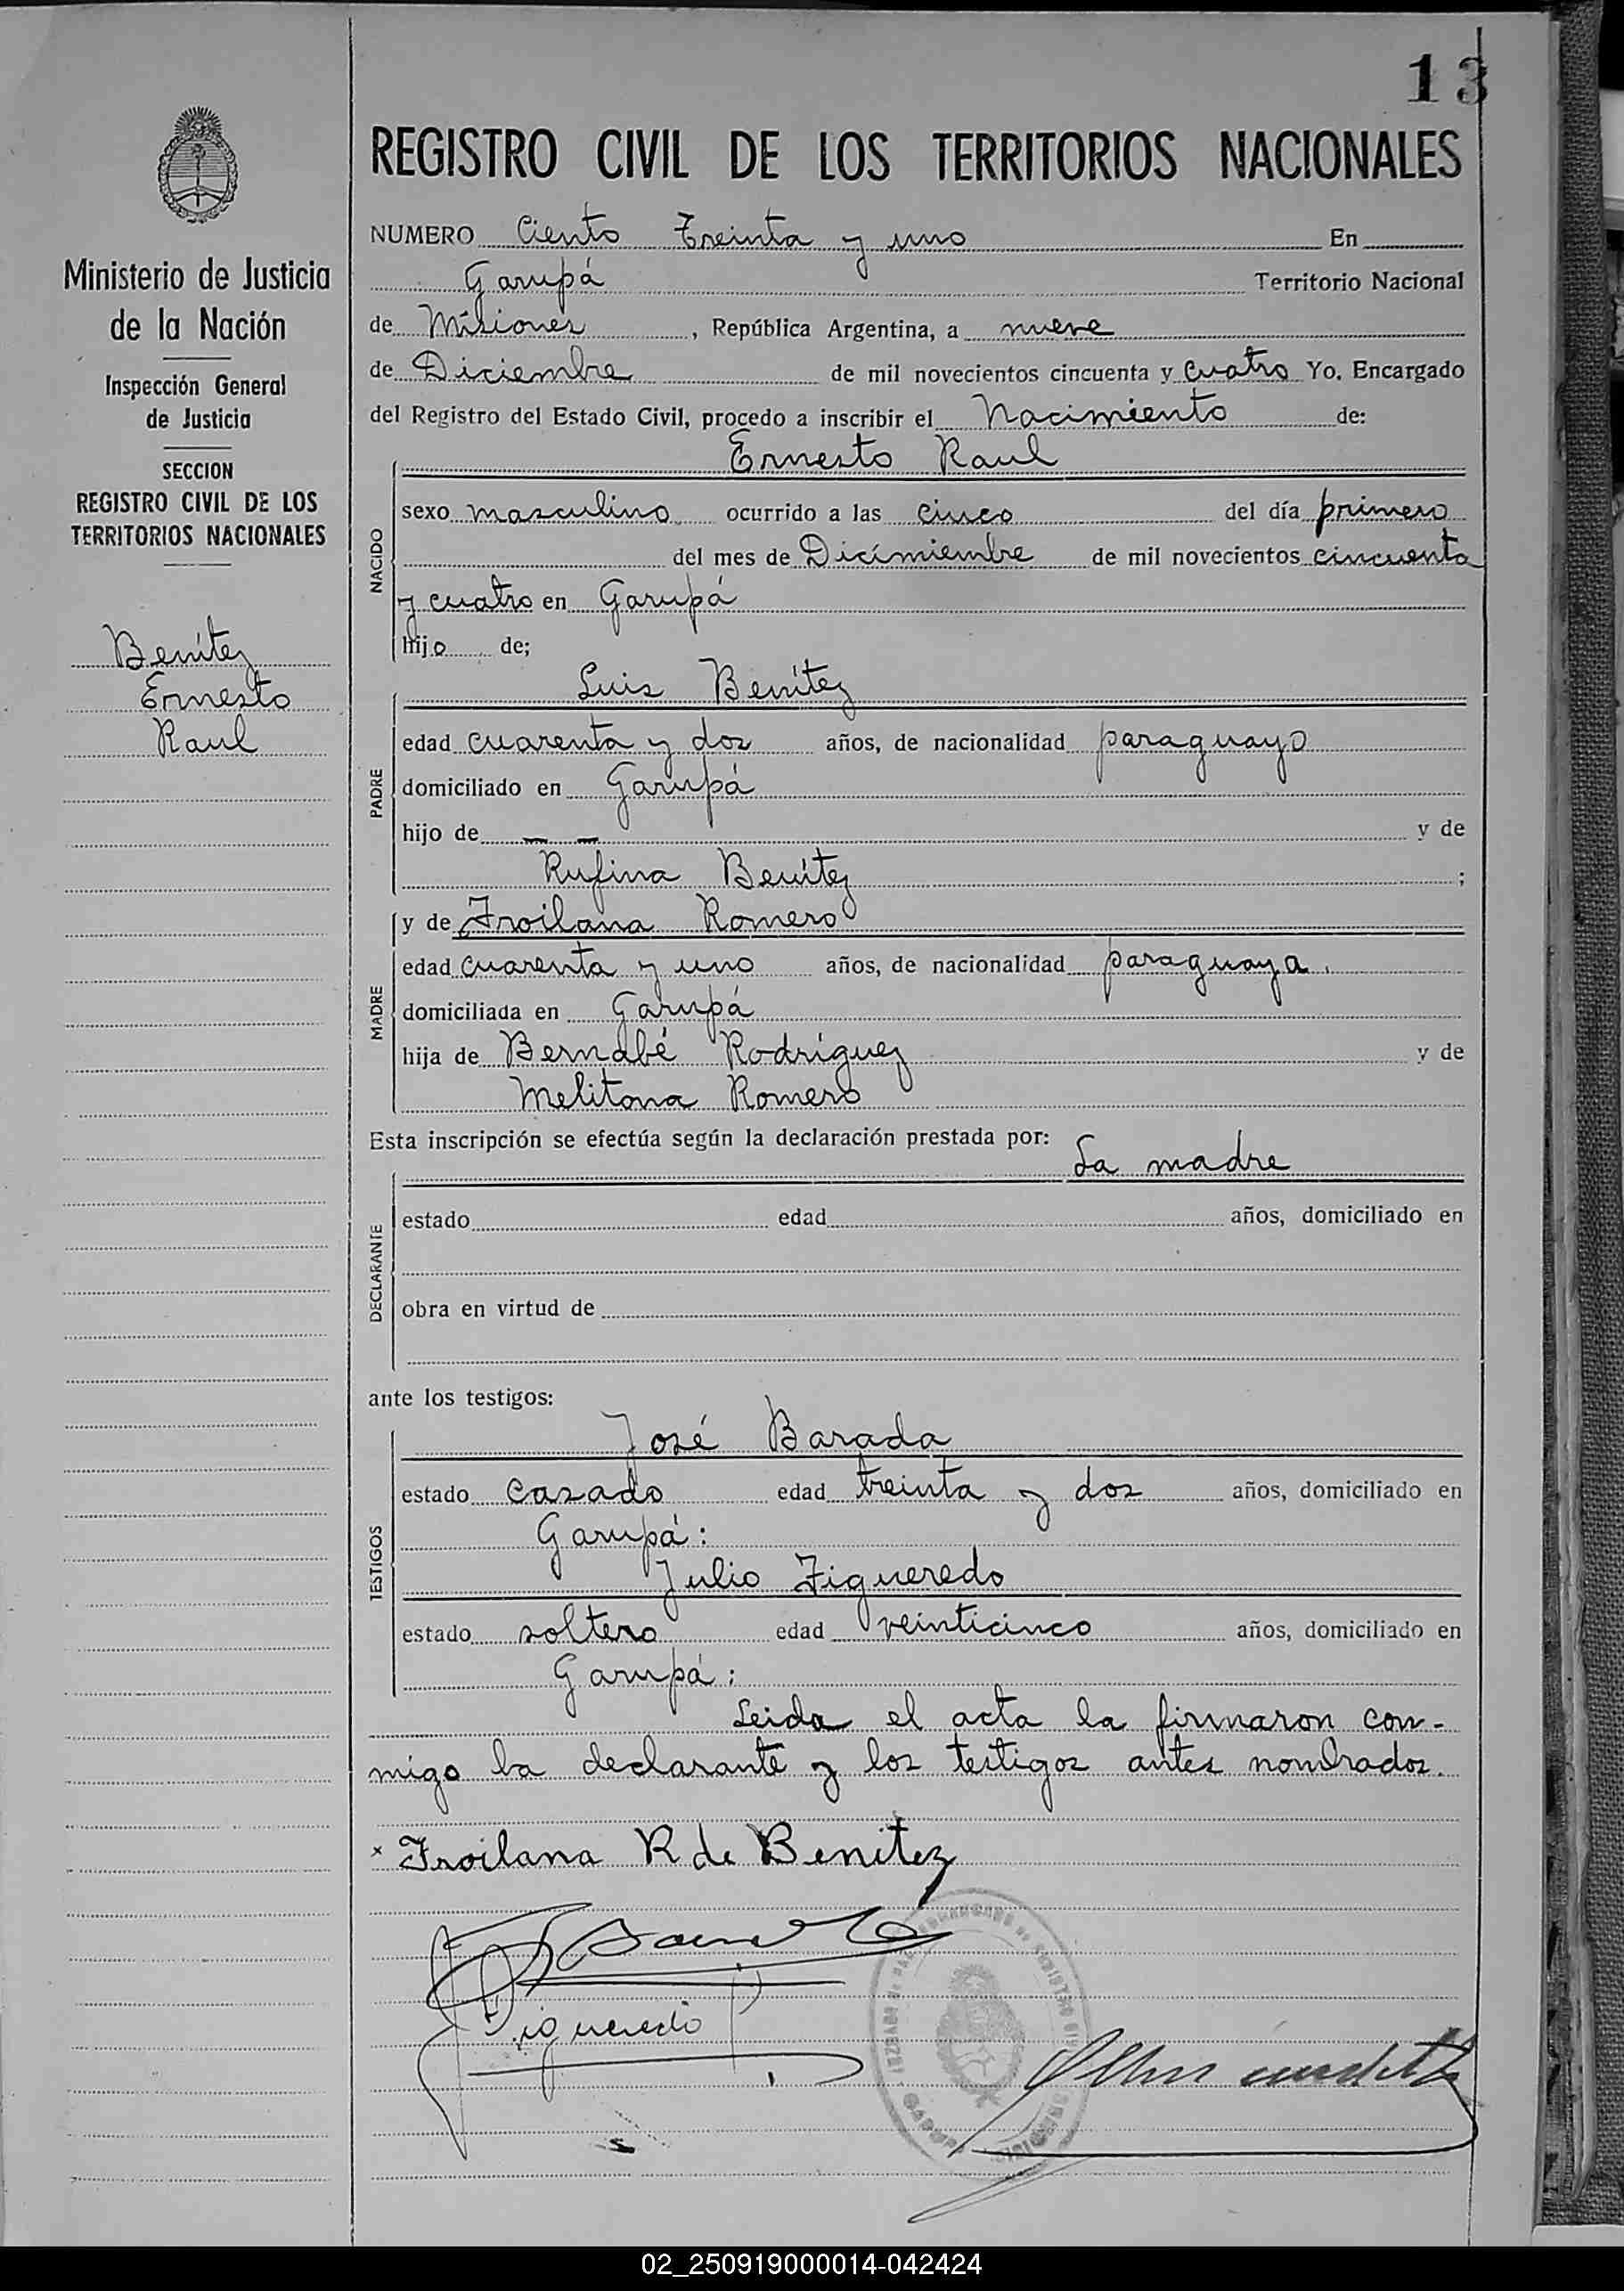 13
REGISTRO CIVIL DE LOS TERRITORIOS NACIONALES
Ministerio de Justicia
de la Nación
Inspección General
de Justicia
SECCION
REGISTRO CIVIL DE LOS
TERRITORIOS NACIONALES
Benítez
Ernesto
Raul
NUMERO Ciento Treinta y uno En
Garupá Territorio Nacional
de Misiones, República Argentina, a nueve
de Diciembre de mil novecientos cincuenta y cuatro Yo, Encargado
del Registro del Estado Civil, procedo a inscribir el Nacimiento de:
Ernesto Raul
NACIDO
sexo masculino ocurrido a las cinco del día primero
del mes de Dicimiembre de mil novecientos cincuenta
y cuatro en Garupá
hijo de;
Luis Benítez
PADRE
edad cuarenta y dos años, de nacionalidad paraguayo
domiciliado en Garupá
hijo de — — y de
Rufina Benítez ;
y de Froilana Romero
MADRE
edad cuarenta y uno años, de nacionalidad paraguaya.
domiciliada en Garupá
hija de Bernabé Rodríguez y de
Melitona Romero
Esta inscripción se efectúa según la declaración prestada por: La madre
DECLARANTE
estado edad años, domiciliado en
obra en virtud de
ante los testigos:
José Barada
TESTIGOS
estado casado edad treinta y dos años, domiciliado en
Garupá:
Julio Figueredo
estado soltero edad veinticinco años, domiciliado en
Garupá:
Leida el acta la firmaron con-
migo la declarante y los testigos antes nombrados.
x Froilana R de Benitez
Figueredo
GARUPA
02_250919000014-042424